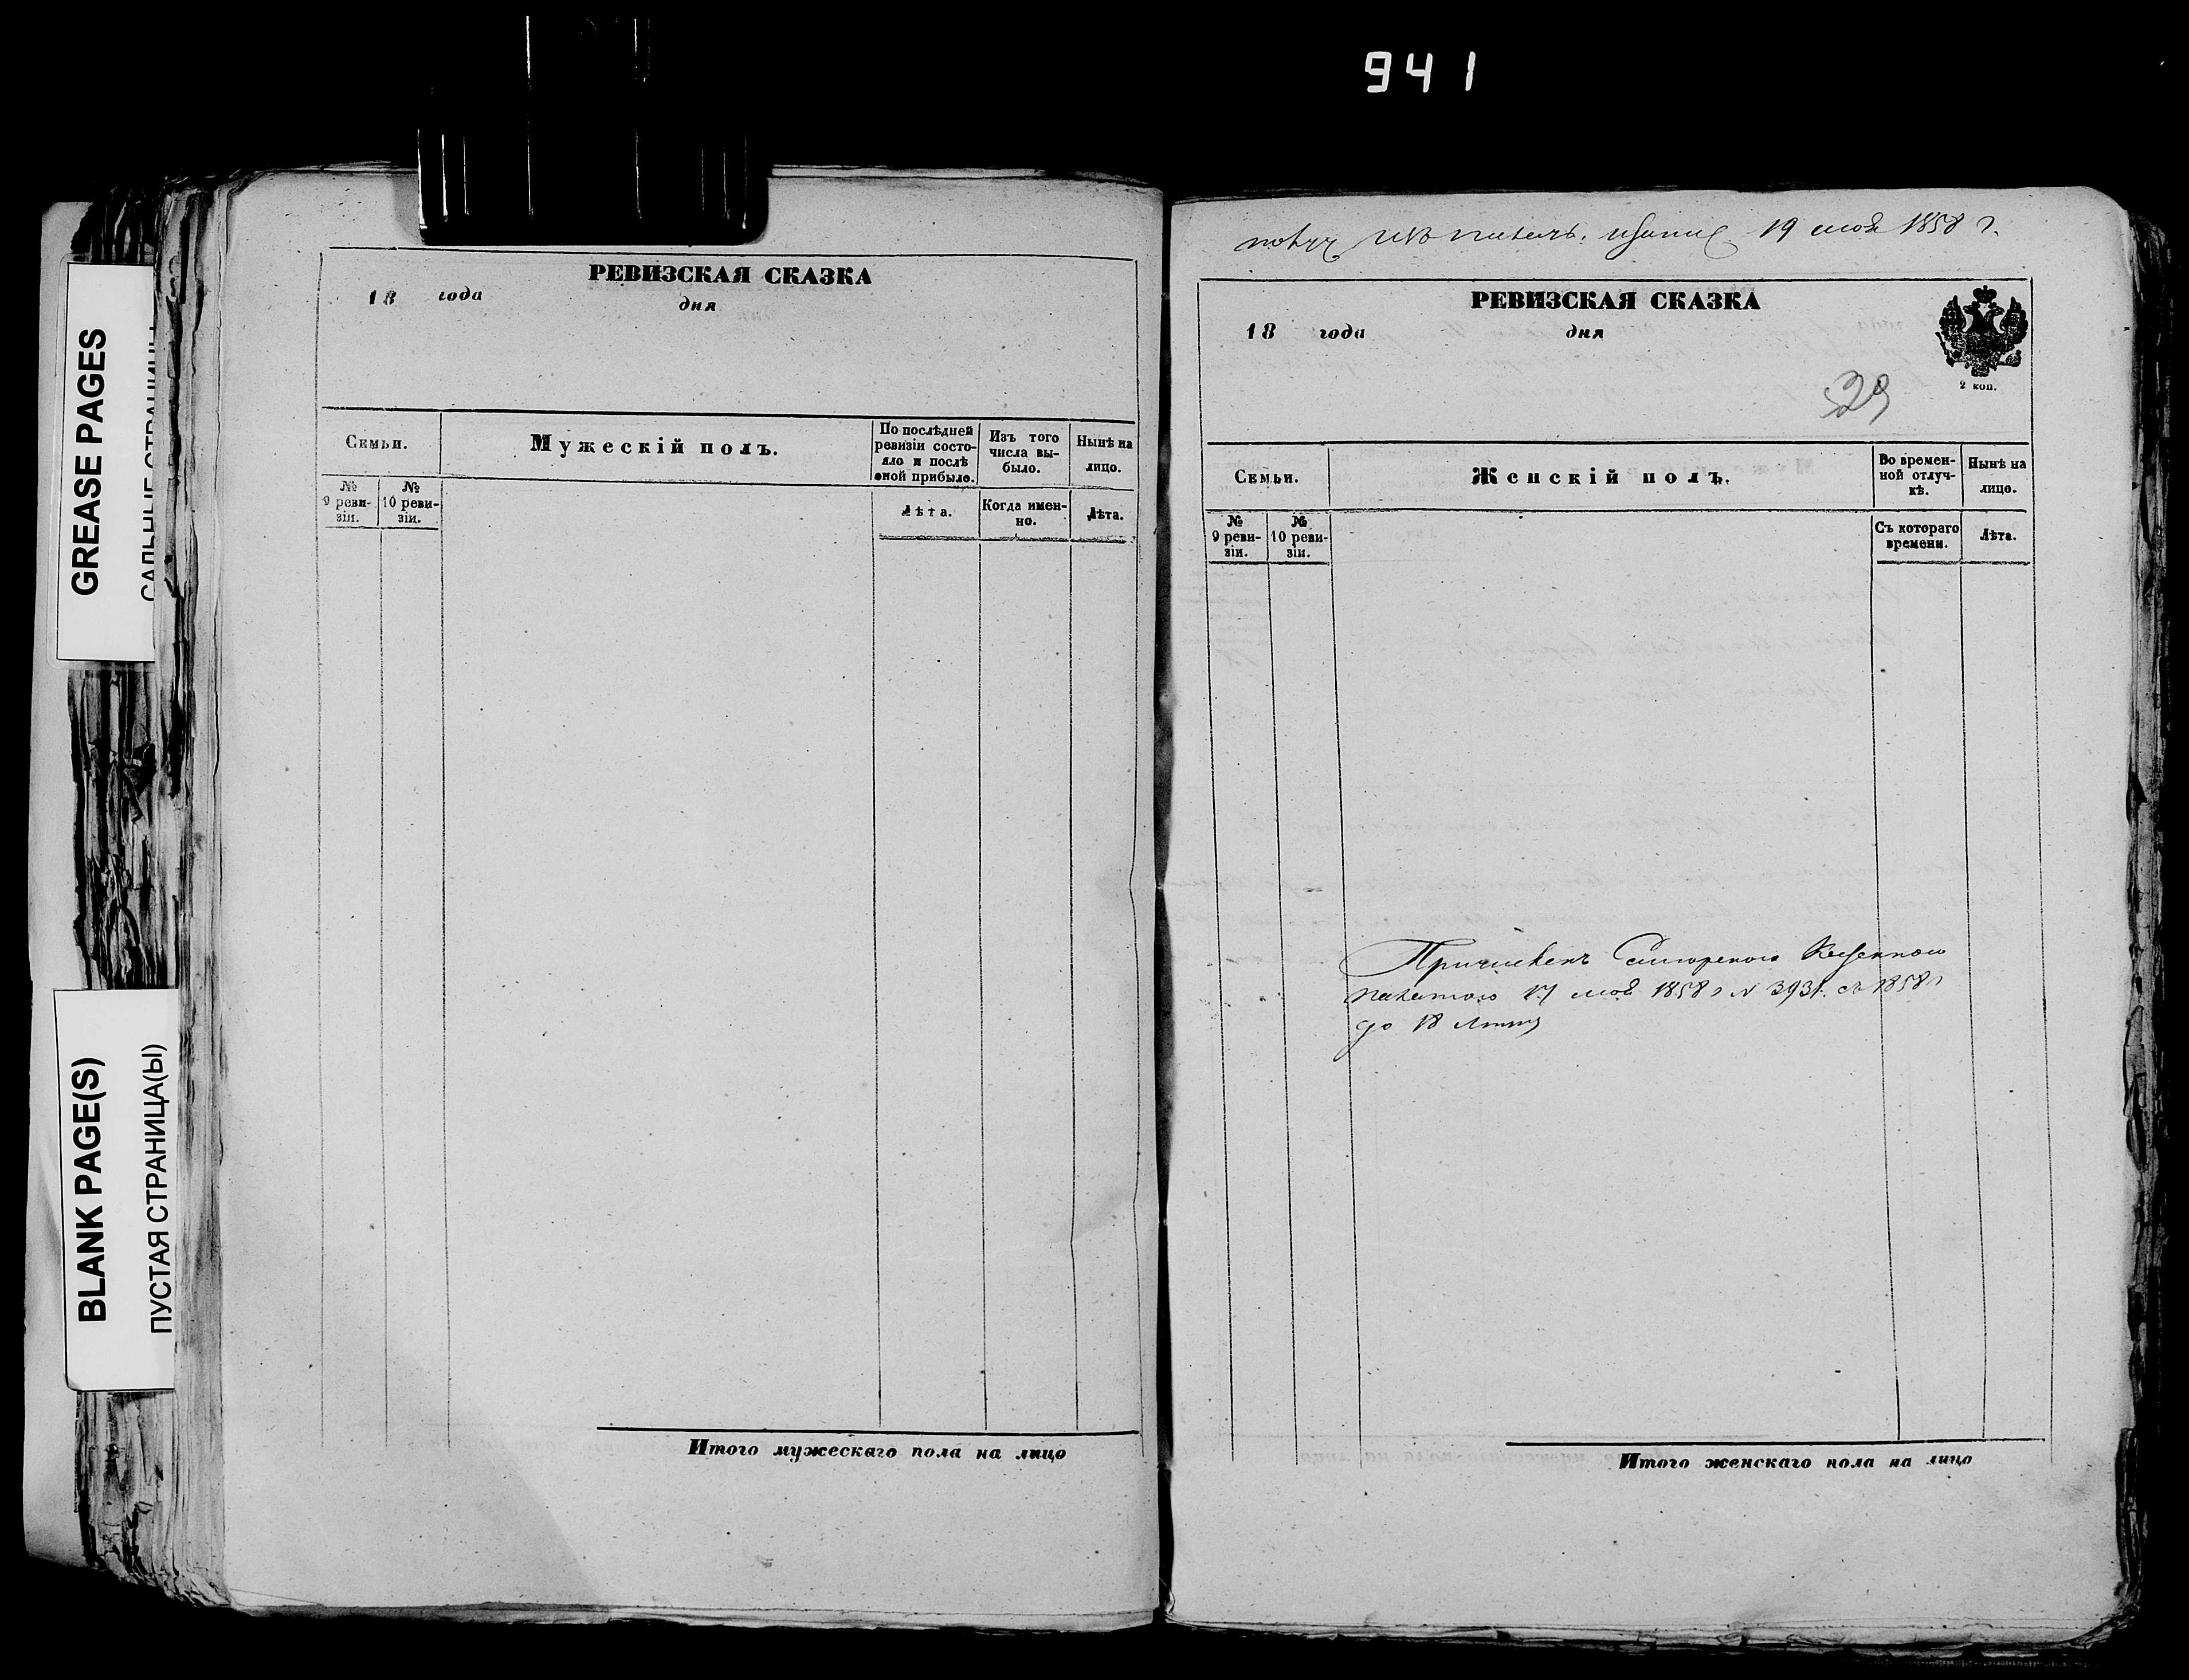 941
GREASE PAGES
BLANK PAGE(S)
ПУСТАЯ СТРАНИЦА(Ы)
РЕВИЗСКАЯ СКАЗКА
18 года дня
Семьи.
Мужескій полъ.
По послѣдней ревизіи состояло и послѣ оной прибыло.
Изъ того числа выбыло.
Нынѣ на лицо.
№ 9 ревизіи.
№ 10 ревизіи.
Лѣта.
Когда именно.
Лѣта.
Итого мужескаго пола на лицо
19 мая 1858 г.
РЕВИЗСКАЯ СКАЗКА
18 года дня
2 коп.
29
Семьи.
Женскій полъ.
Во временной отлучкѣ.
Нынѣ на лицо.
№ 9 ревизіи.
№ 10 ревизіи.
Съ котораго времени.
Лѣта.
Причисленъ Казенною
палатою 17 мая 1858 г N 3931. съ 1858 г
до 18
Итого женскаго пола на лицо